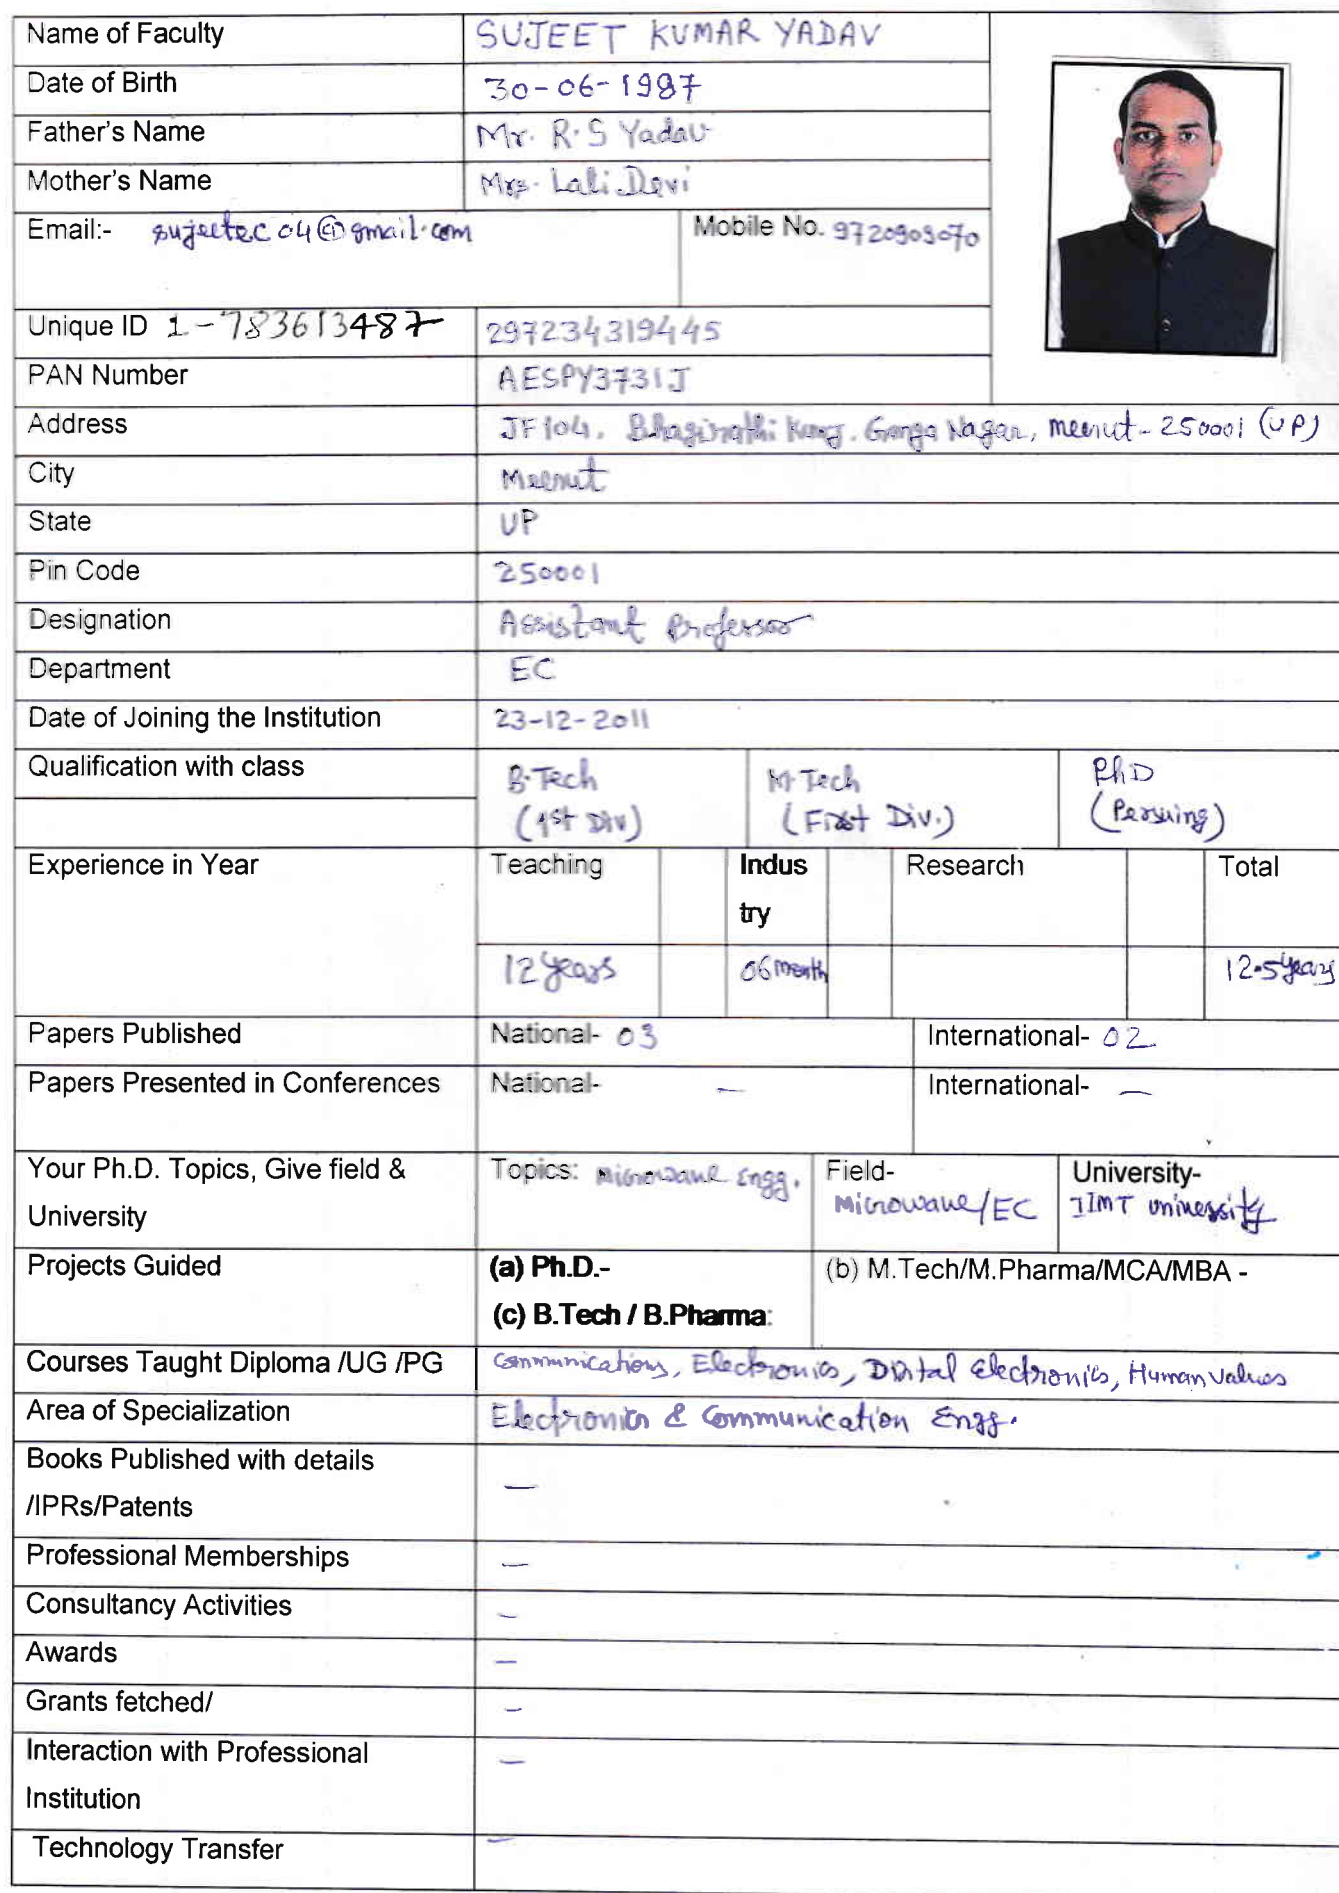 Name of Faculty SUJEET KUMAR YADAV
Date of Birth 30-06-1987
Father's Name Mr. R.S Yadav
Mother's Name Mrs. Lali Devi
Email:- sujeetec04@gmail.com Mobile No. 9720909070
Unique ID 1-783613487 297234319445
PAN Number AESPY3731J
Address JF104, Bhagirathi Kunj, Ganga Nagar, Meerut-250001 (UP)
City Meerut
State UP
Pin Code 250001
Designation Assistant Professor
Department EC
Date of Joining the Institution 23-12-2011
Qualification with class B.Tech M.Tech PhD
(1st Div) (First Div.) (Persuing)
Experience in Year Teaching Indus Research Total
try
12 years 06 month 12.5 years
Papers Published National- 03 International- 02
Papers Presented in Conferences National- — International- —
Your Ph.D. Topics, Give field & Topics: Microwave Engg. Field- University-
University Microwave/EC IIMT University
Projects Guided (a) Ph.D.- (b) M.Tech/M.Pharma/MCA/MBA -
(c) B.Tech / B.Pharma:
Courses Taught Diploma /UG /PG Communications, Electronics, Digital Electronics, Human Values
Area of Specialization Electronics & Communication Engg.
Books Published with details —
/IPRs/Patents
Professional Memberships —
Consultancy Activities —
Awards —
Grants fetched/ —
Interaction with Professional —
Institution
Technology Transfer —